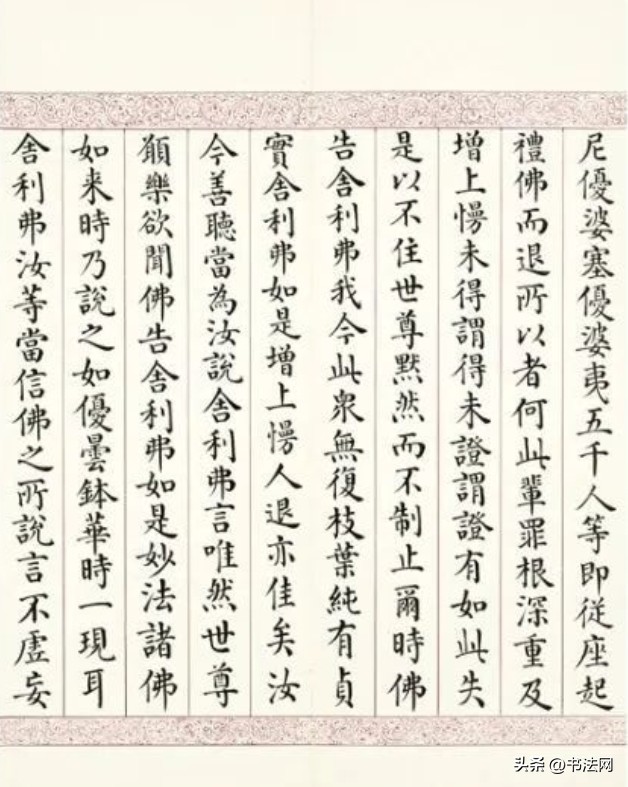 尼優婆塞優婆夷五千人等即従座起
禮佛而退所以者何此輩罪根深重及
增上慢未得謂得未證謂證有如此失
是以不住世尊默然而不制止爾時佛
告舍利弗我今此衆無復枝葉純有貞
實舍利弗如是增上慢人退亦佳矣汝
今善聽當為汝說舍利弗言唯然世尊
願樂欲聞佛告舍利弗如是妙法諸佛
如来時乃說之如優曇鉢華時一現耳
舍利弗汝等當信佛之所說言不虛妄
头条 @书法网